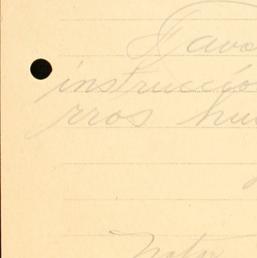 Favo
instruccio
rros hu
Notar